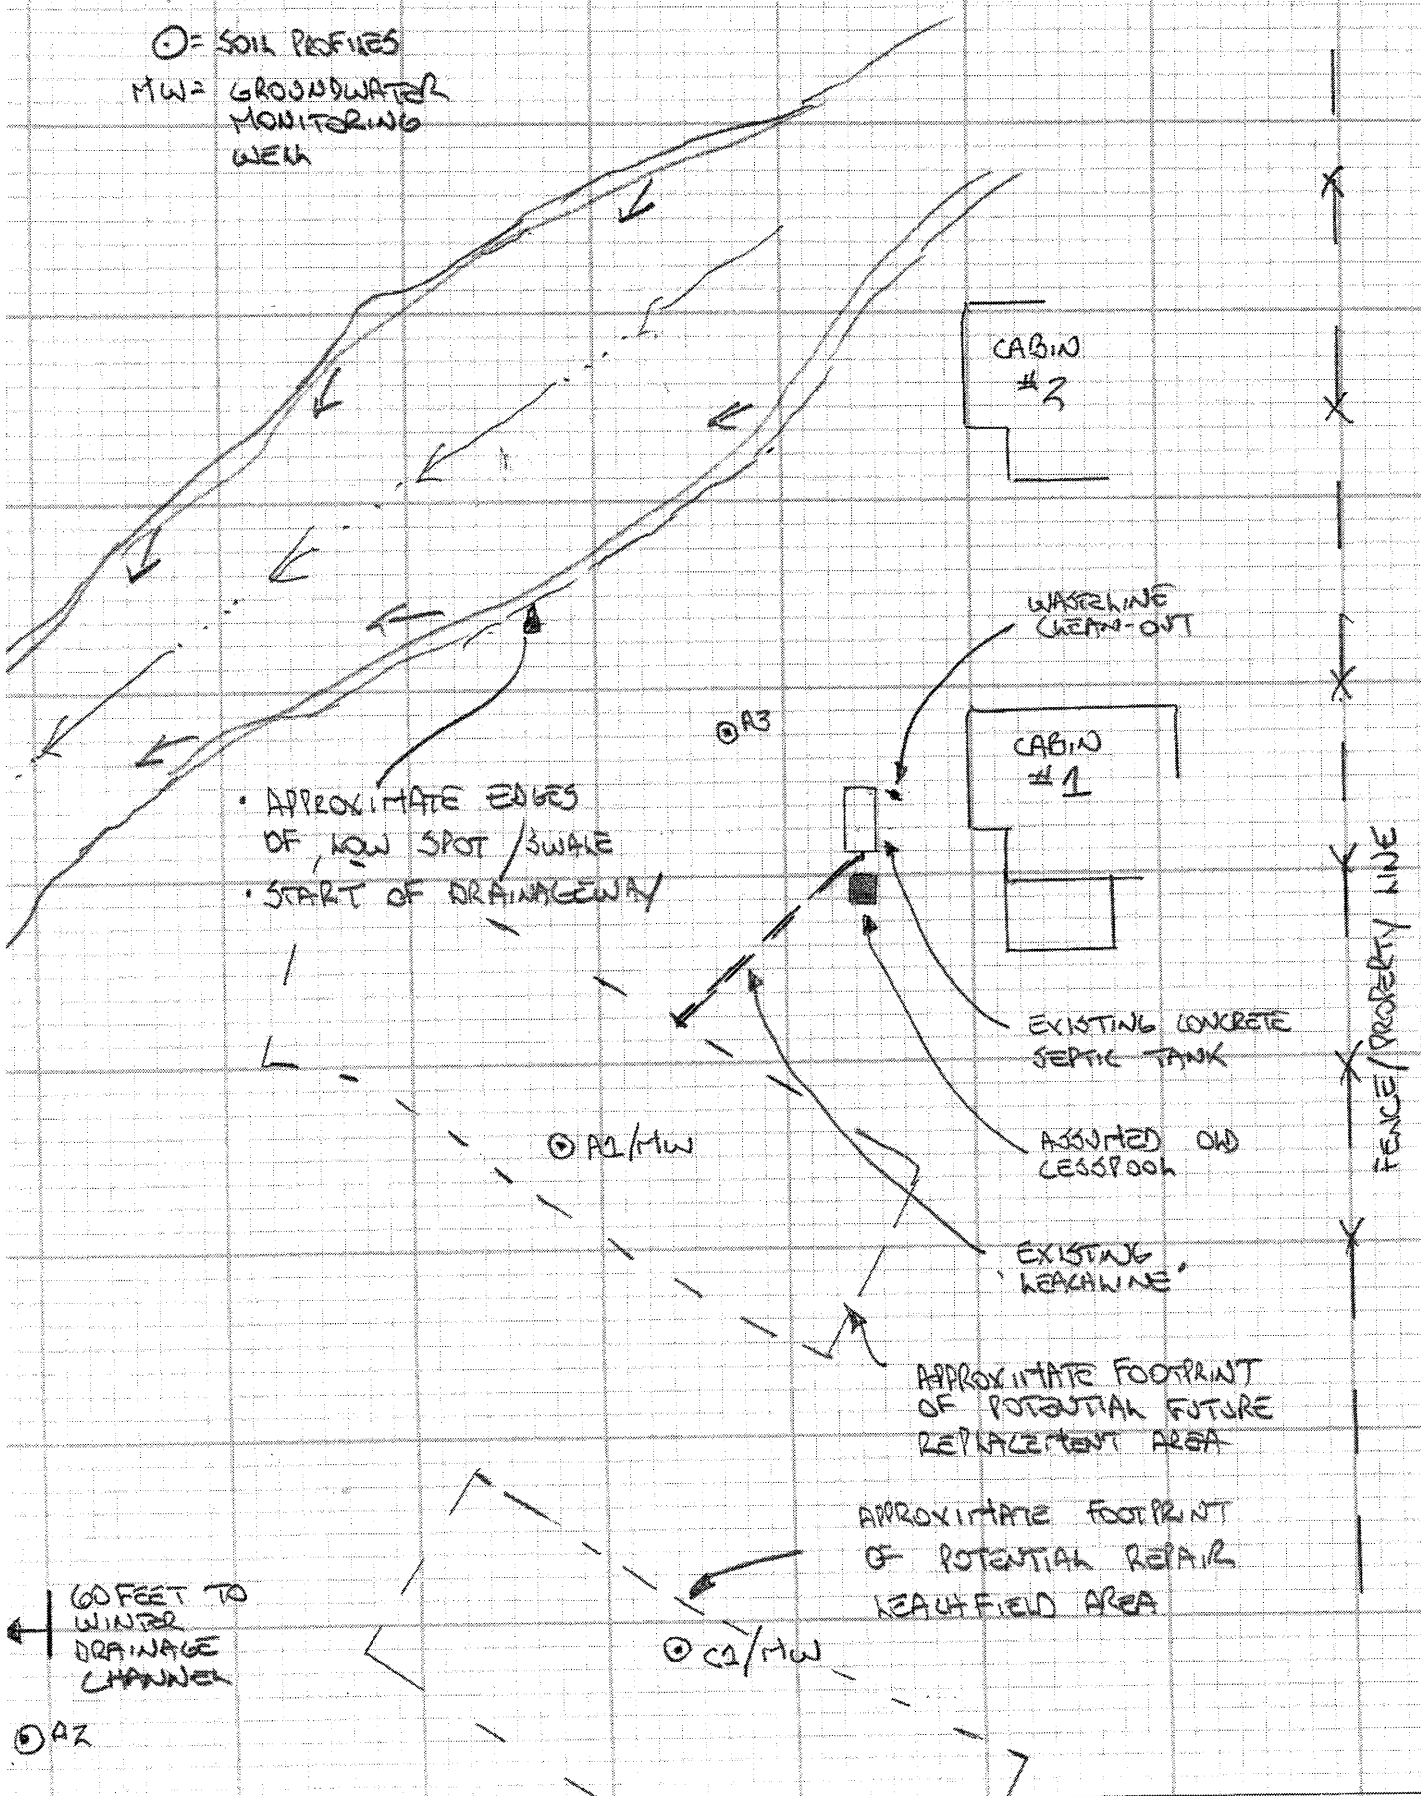 ⊙ = SOIL PROFILES
MW = GROUNDWATER
MONITORING
WELL
CABIN
#2
WASTELINE
CLEAN-OUT
A3
CABIN
#1
• APPROXIMATE EDGES
OF LOW SPOT/SWALE
• START OF DRAINAGEWAY
FENCE/PROPERTY LINE
EXISTING CONCRETE
SEPTIC TANK
A1/MW
ASSUMED OLD
CESSPOOL
EXISTING
'LEACHLINE'
APPROXIMATE FOOTPRINT
OF POTENTIAL FUTURE
REPLACEMENT AREA
APPROXIMATE FOOTPRINT
OF POTENTIAL REPAIR
LEACHFIELD AREA
60 FEET TO
WINTER
DRAINAGE
CHANNEL
C1/MW
A2